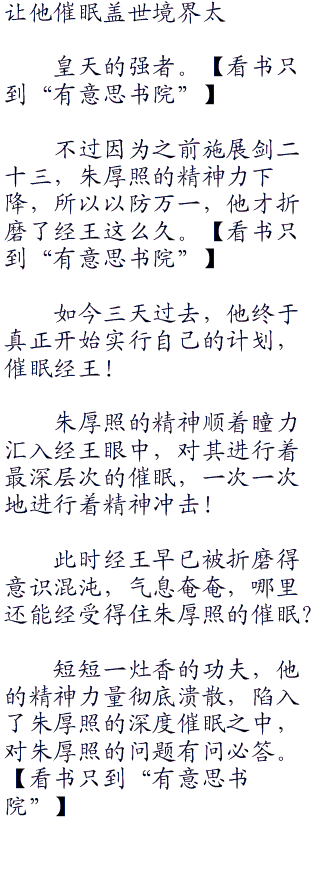 让他催眠盖世境界太
皇天的强者。【看书只
到“有意思书院”】
不过因为之前施展剑二
十三，朱厚照的精神力下
降，所以以防万一，他才折
磨了经王这么久。【看书只
到“有意思书院”】
如今三天过去，他终于
真正开始实行自己的计划，
催眠经王！
朱厚照的精神顺着瞳力
汇入经王眼中，对其进行着
最深层次的催眠，一次一次
地进行着精神冲击！
此时经王早已被折磨得
意识混沌，气息奄奄，哪里
还能经受得住朱厚照的催眠？
短短一灶香的功夫，他
的精神力量彻底溃散，陷入
了朱厚照的深度催眠之中，
对朱厚照的问题有问必答。
【看书只到“有意思书
院”】